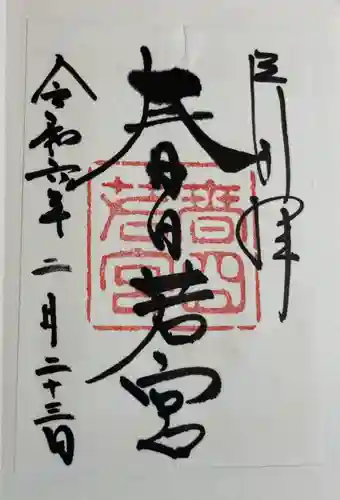 奉拝
春日若宮
春日若宮
令和六年二月二十三日